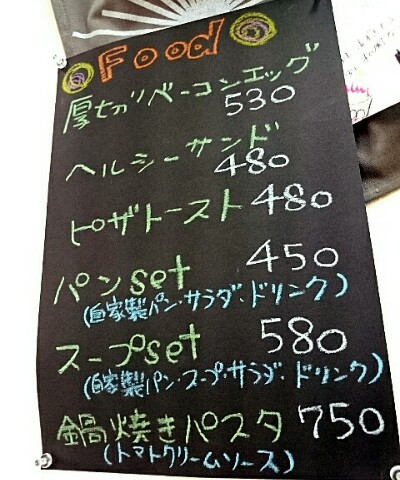 Food
厚切りベーコンエッグ
530
ヘルシーサンド
480
ピザトースト 480
パンset 450
(自家製パン・サラダ・ドリンク)
スープset 580
(自家製パン・スープ・サラダ・ドリンク)
鍋焼きパスタ 750
(トマトクリームソース)